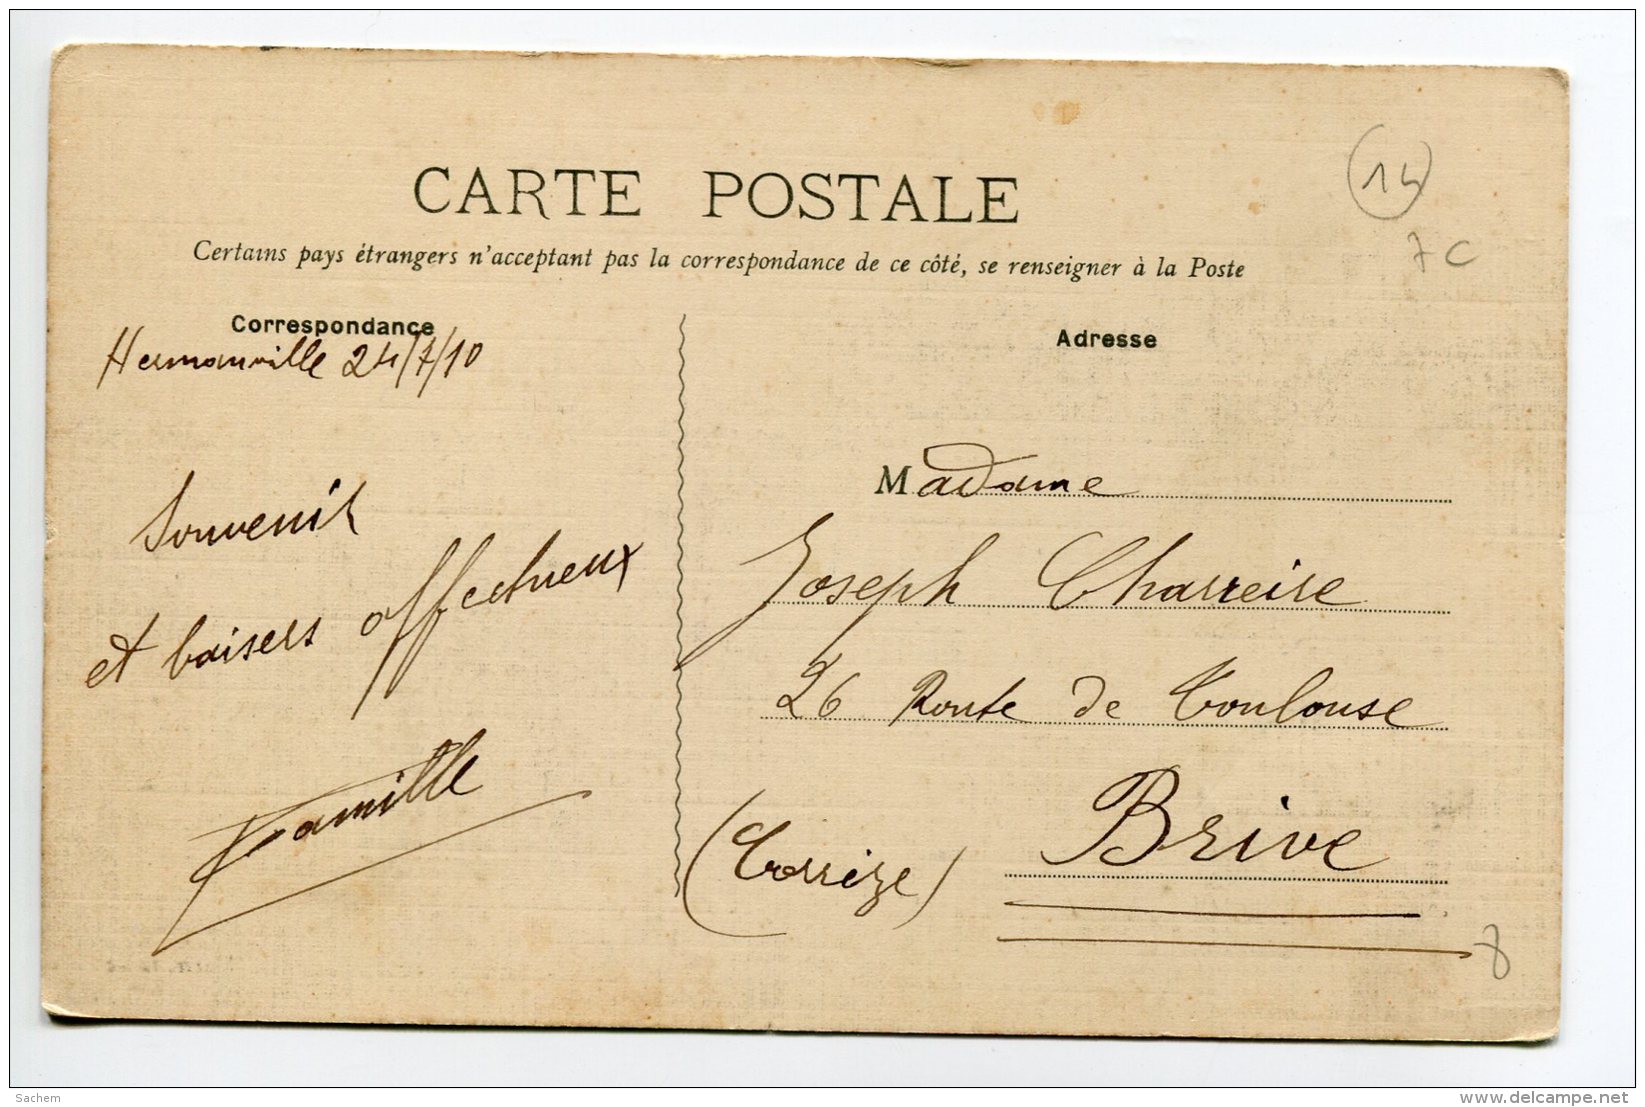 CARTE POSTALE
Certains pays étrangers n'acceptant pas la correspondance de ce côté, se renseigner à la Poste
14
7 C
Correspondance
Hermanville 24/7/10
Souvenir
et baisers affectueux
Camille
Adresse
Madame
Joseph Charreire
26 Route de Toulouse
Brive
(Corrèze)
8
Sachem
www.delcampe.net